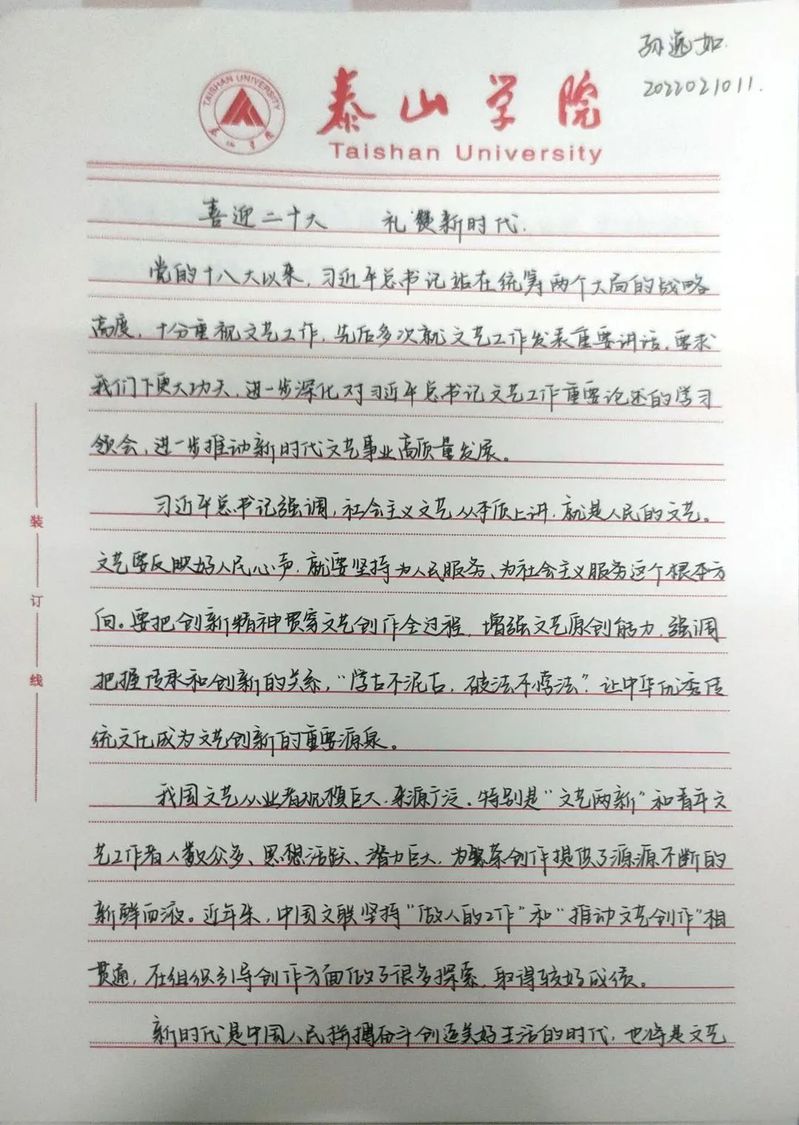 孙逸如
2022021011.
TAISHAN UNIVERSITY
泰山学院
泰山学院
Taishan University
喜迎二十大 礼赞新时代.
党的十八大以来，习近平总书记站在统筹两个大局的战略
高度，十分重视文艺工作，先后多次就文艺工作发表重要讲话，要求
我们下更大功夫，进一步深化对习近平总书记文艺工作重要论述的学习
领会，进一步推动新时代文艺事业高质量发展。
习近平总书记强调，社会主义文艺从本质上讲，就是人民的文艺。
文艺要反映好人民心声，就要坚持为人民服务、为社会主义服务这个根本方
向。要把创新精神贯穿文艺创作全过程，增强文艺原创能力，强调
把握传承和创新的关系，“学古不泥古，破法不悖法”让中华优秀传
统文化成为文艺创新的重要源泉。
我国文艺从业者规模巨大、来源广泛，特别是“文艺两新”和青年文
艺工作者人数众多、思想活跃、潜力巨大，为繁荣创作提供了源源不断的
新鲜血液。近年来，中国文联坚持“做人的工作”和“推动文艺创作”相
贯通，在组织引导创作方面做了很多探索，取得较好成绩。
新时代是中国人民拼搏奋斗创造美好生活的时代，也将是文艺
装
订
线